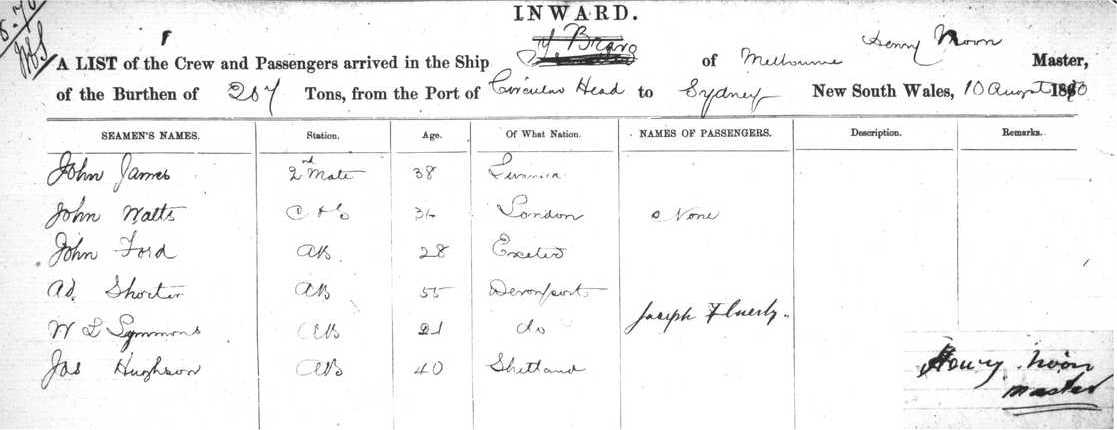 INWARD.
Henry Moon
A LIST of the Crew and Passengers arrived in the Ship of Melbourne Master,
of the Burthen of 257 Tons, from the Port of Circular Head to Sydney New South Wales, 10 August 18
SEAMEN'S NAMES. Station. Age. Of What Nation. NAMES OF PASSENGERS. Description. Remarks.
John James 2nd Mate 38
John Watts 36 London None
John Ford AB. 28 Exeter
Ad. Shorter AB 55 Devonport
Joseph
W L Symmons AB 21 do
Jas Hughson AB 40 Shetland
Henry Moon
master